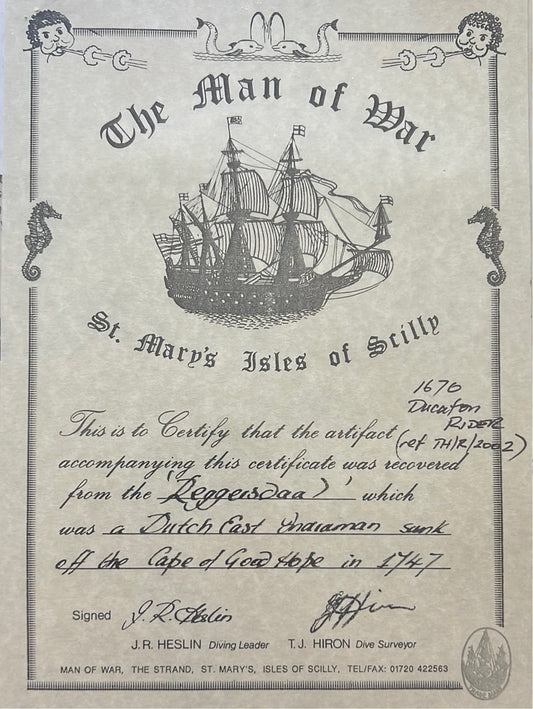 The Man of War
St. Mary's Isles of Scilly
1670
Ducaton
RIDER
(ref TH/R/2002)
This is to Certify that the artifact
accompanying this certificate was recovered
from the 'Reggersdaal' which
was a Dutch East Indiaman sunk
off the Cape of Good Hope in 1747
Signed J.R. Heslin
J.R. HESLIN Diving Leader T.J. HIRON Dive Surveyor
MAN OF WAR, THE STRAND, ST. MARY'S, ISLES OF SCILLY, TEL/FAX: 01720 422563